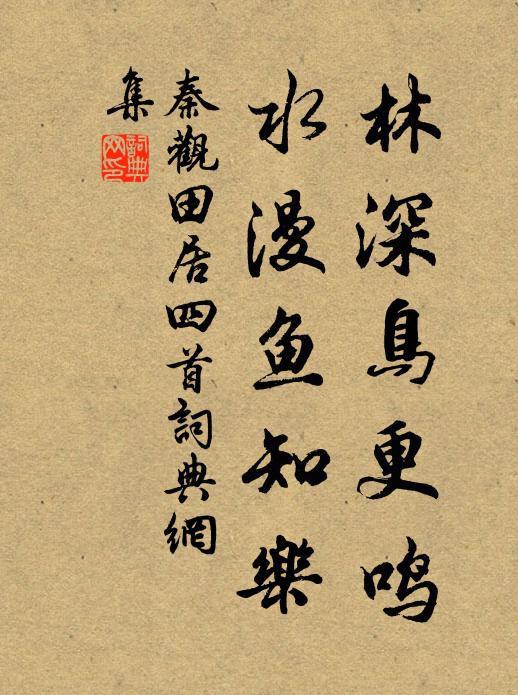 林深鳥更鸣
水漫鱼知樂
秦觀田居四首詞典網
集
詞典
网印